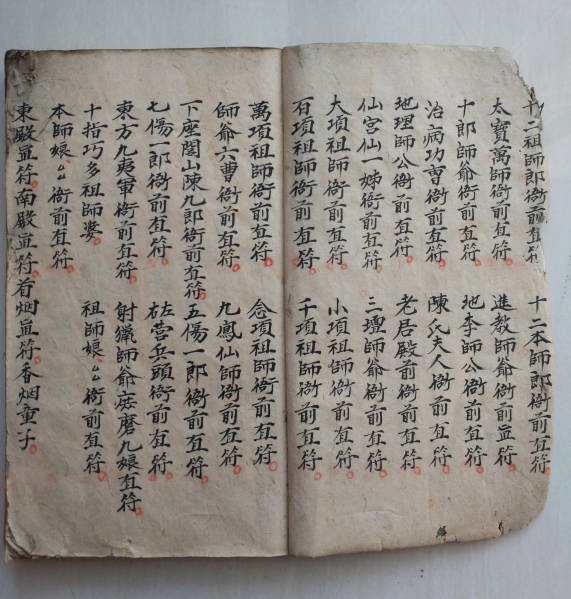 十二祖師郎衙前直符 十二本師郎衙前直符
太寶萬師衙前直符 進教師爺衙前直符
十郎師爺衙前直符 地李師公衙前直符
治病功曹衙前直符 陳氏夫人衙前直符
地理師公衙前直符 老君殿前衙前直符
仙宮仙一姊衙前直符 三壇師爺衙前直符
大項祖師衙前直符 小項祖師衙前直符
百項祖師衙前直符 千項祖師衙前直符
萬項祖師衙前直符 念項祖師衙前直符
師爺六曹衙前直符 九鳳仙師衙前直符
下座閭山陳九郎衙前直符 五傷一郎衙前直符
七傷一郎衙前直符 左营兵頭衙前直符
東方九夷軍衙前直符 射獵師爺庶磨九娘直符
十指巧多祖師婆
本師娘〻衙前直符 祖師娘〻衙前直符
東殿直符南殿直符着烟直符香烟童子